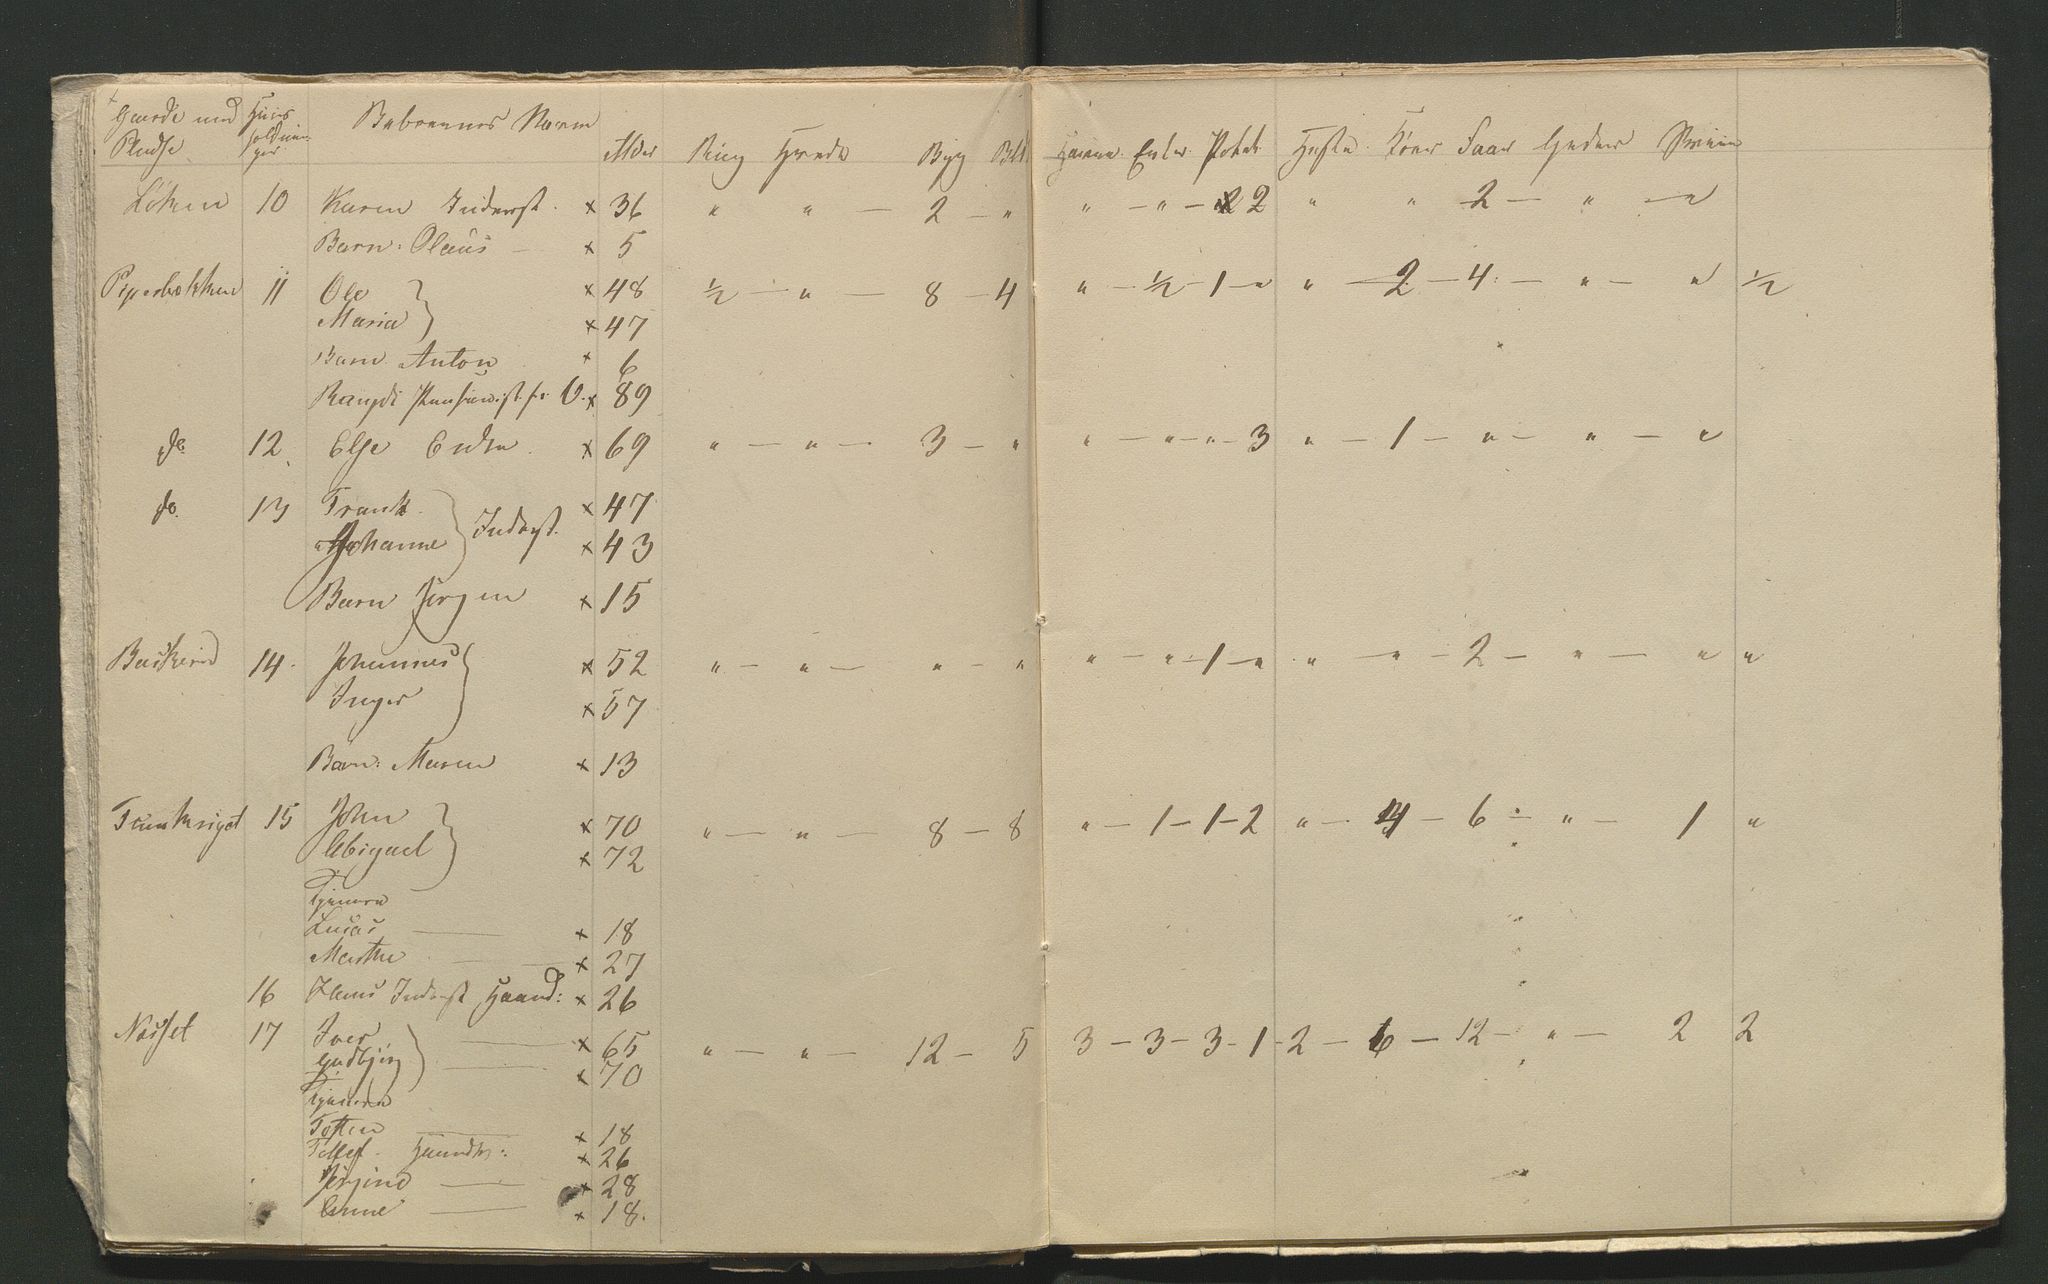 Gaarde med Huus Beboernes Navne
Pladse holdninger Alder Rug Hvede Byg Bl Havre Erter Potet Heste Køer Faar Geder Sviin
Løken 10 Karen Inderst. x 36 " " — 2 — " " — " — 2 " " 2 — " — "
Barn: Olaus — x 5
Piperbækken 11 Ole x 48 ½ — " — 8 — 4 " — ½ — 1 — " " — 2 — 4 — " — " ½
Maria x 47
Barn Anton x 6
Rangdi x 89
do 12 Else Enke x 69 " — " — 3 — " " — " — " — 3 " — 1 — " — " — "
do 13 Frank x 47
Johanne Inderst. x 43
Barn Jørgen x 15
Baskerud 14 Johannes x 52 " — " — " — " " — " — 1 — " " — " — 2 — " — " "
Inger x 57
Barn: Maren x 13
15 John x 70 " — " — 8 — 8 " — 1 — 1 — 2 " — 4 — 6 — " — 1 "
Abigael x 72
Tjenere
Lucas — x 18
Marthe — x 27
16 Hans Inderst Haand: x 26
Næsset 17 Iver — x 65 " — " — 12 — 5 3 — 3 — 3 — 1 — 2 — 6 — 12 — " — 2 2
Gudbjør — x 70
Tjenere
Tosten — x 18
Tellef Haandv: x 26
Jørgine — x 28
Anne — x 18.